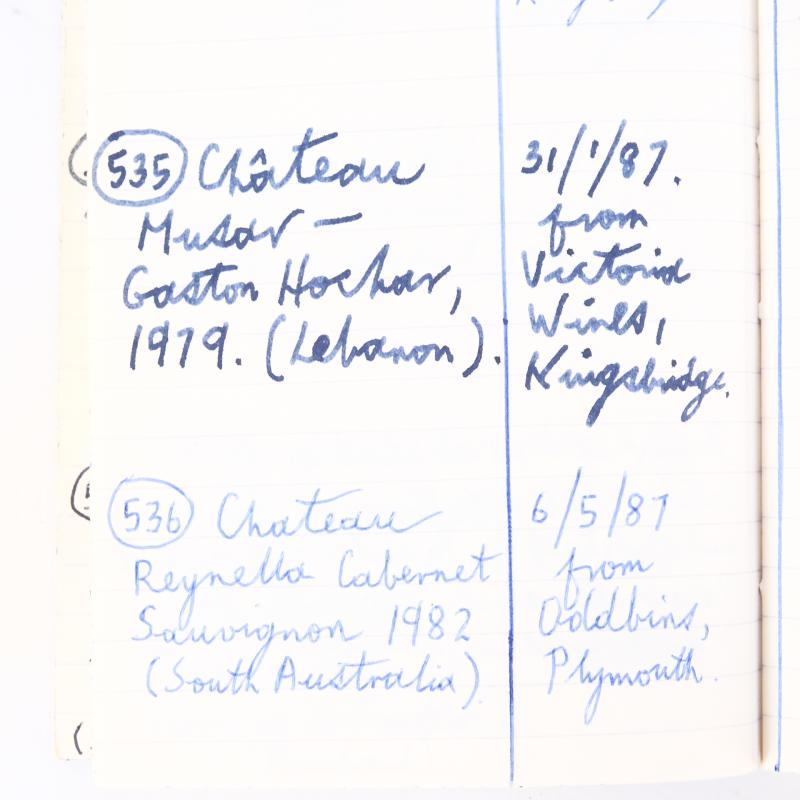 535 Château
Musar —
Gaston Hochar,
1979. (Lebanon).
31/1/87.
from
Victoria
Wines,
Kingsbridge.
536 Chateau
Reynella Cabernet
Sauvignon 1982
(South Australia).
6/5/87
from
Oddbins,
Plymouth.